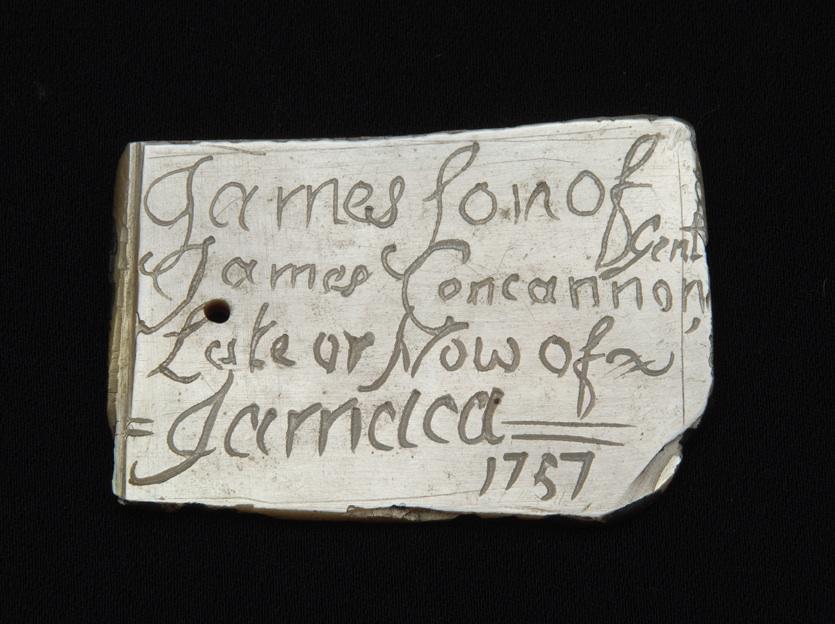 James Son of
Gent
James Concannon,
Late or Now of
=Jamaica=
1757